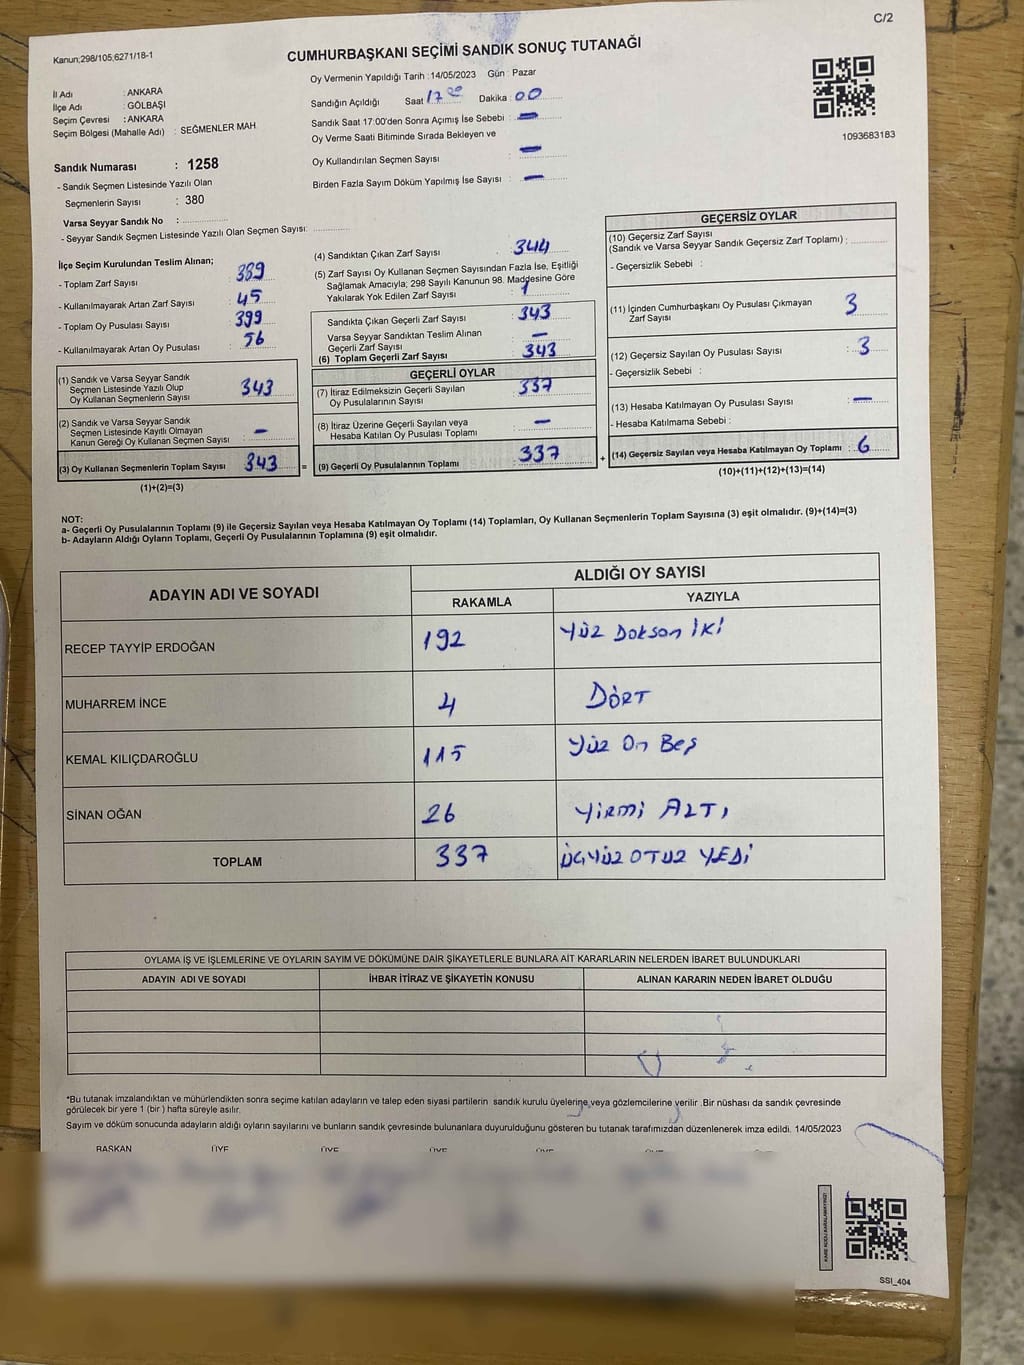 C/2
Kanun;298/105;6271/18-1
CUMHURBAŞKANI SEÇİMİ SANDIK SONUÇ TUTANAĞI
İl Adı : ANKARA
İlçe Adı : GÖLBAŞI
Seçim Çevresi : ANKARA
Seçim Bölgesi (Mahalle Adı) : SEĞMENLER MAH
Sandık Numarası : 1258
- Sandık Seçmen Listesinde Yazılı Olan
Seçmenlerin Sayısı : 380
Varsa Seyyar Sandık No :
- Seyyar Sandık Seçmen Listesinde Yazılı Olan Seçmen Sayısı:
Oy Vermenin Yapıldığı Tarih :14/05/2023 Gün : Pazar
Sandığın Açıldığı Saat 17 00 Dakika : 00
Sandık Saat 17:00'den Sonra Açımış İse Sebebi : —
Oy Verme Saati Bitiminde Sırada Bekleyen ve
Oy Kullandırılan Seçmen Sayısı : —
Birden Fazla Sayım Döküm Yapılmış İse Sayısı : —
1093683183
İlçe Seçim Kurulundan Teslim Alınan;
- Toplam Zarf Sayısı : 389
- Kullanılmayarak Artan Zarf Sayısı : 45
- Toplam Oy Pusulası Sayısı : 399
- Kullanılmayarak Artan Oy Pusulası : 56
(1) Sandık ve Varsa Seyyar Sandık
Seçmen Listesinde Yazılı Olup
Oy Kullanan Seçmenlerin Sayısı 343
(2) Sandık ve Varsa Seyyar Sandık
Seçmen Listesinde Kayıtlı Olmayan
Kanun Gereği Oy Kullanan Seçmen Sayısı : —
(3) Oy Kullanan Seçmenlerin Toplam Sayısı 343 =
(1)+(2)=(3)
(4) Sandıktan Çıkan Zarf Sayısı : 344
(5) Zarf Sayısı Oy Kullanan Seçmen Sayısından Fazla İse, Eşitliği
Sağlamak Amacıyla; 298 Sayılı Kanunun 98. Maddesine Göre
Yakılarak Yok Edilen Zarf Sayısı : 1
Sandıkta Çıkan Geçerli Zarf Sayısı : 343
Varsa Seyyar Sandıktan Teslim Alınan
Geçerli Zarf Sayısı : —
(6) Toplam Geçerli Zarf Sayısı 343
GEÇERLİ OYLAR
(7) İtiraz Edilmeksizin Geçerli Sayılan
Oy Pusulalarının Sayısı : 337
(8) İtiraz Üzerine Geçerli Sayılan veya
Hesaba Katılan Oy Pusulası Toplamı : —
(9) Geçerli Oy Pusulalarının Toplamı 337 +
GEÇERSİZ OYLAR
(10) Geçersiz Zarf Sayısı
(Sandık ve Varsa Seyyar Sandık Geçersiz Zarf Toplamı) :
- Geçersizlik Sebebi :
(11) İçinden Cumhurbaşkanı Oy Pusulası Çıkmayan
Zarf Sayısı : 3
(12) Geçersiz Sayılan Oy Pusulası Sayısı : 3
- Geçersizlik Sebebi :
(13) Hesaba Katılmayan Oy Pusulası Sayısı : —
- Hesaba Katılmama Sebebi :
(14) Geçersiz Sayılan veya Hesaba Katılmayan Oy Toplamı : 6
(10)+(11)+(12)+(13)=(14)
NOT:
a- Geçerli Oy Pusulalarının Toplamı (9) ile Geçersiz Sayılan veya Hesaba Katılmayan Oy Toplamı (14) Toplamları, Oy Kullanan Seçmenlerin Toplam Sayısına (3) eşit olmalıdır. (9)+(14)=(3)
b- Adayların Aldığı Oyların Toplamı, Geçerli Oy Pusulalarının Toplamına (9) eşit olmalıdır.
ADAYIN ADI VE SOYADI
ALDIĞI OY SAYISI
RAKAMLA YAZIYLA
RECEP TAYYİP ERDOĞAN 192 Yüz Doksan İKİ
MUHARREM İNCE 4 DÖRT
KEMAL KILIÇDAROĞLU 115 Yüz On Beş
SİNAN OĞAN 26 Yirmi ALTI
TOPLAM 337 ÜÇYÜZ OTUZ YEDİ
OYLAMA İŞ VE İŞLEMLERİNE VE OYLARIN SAYIM VE DÖKÜMÜNE DAİR ŞİKAYETLERLE BUNLARA AİT KARARLARIN NELERDEN İBARET BULUNDUKLARI
ADAYIN ADI VE SOYADI İHBAR İTİRAZ VE ŞİKAYETİN KONUSU ALINAN KARARIN NEDEN İBARET OLDUĞU
*Bu tutanak imzalandıktan ve mühürlendikten sonra seçime katılan adayların ve talep eden siyasi partilerin sandık kurulu üyelerine veya gözlemcilerine verilir .Bir nüshası da sandık çevresinde
görülecek bir yere 1 (bir ) hafta süreyle asılır.
Sayım ve döküm sonucunda adayların aldığı oyların sayılarını ve bunların sandık çevresinde bulunanlara duyurulduğunu gösteren bu tutanak tarafımızdan düzenlenerek imza edildi. 14/05/2023
BAŞKAN ÜYE ÜYE ÜYE ÜYE
KARE KODU KARALAMAYINIZ!
SSI_404